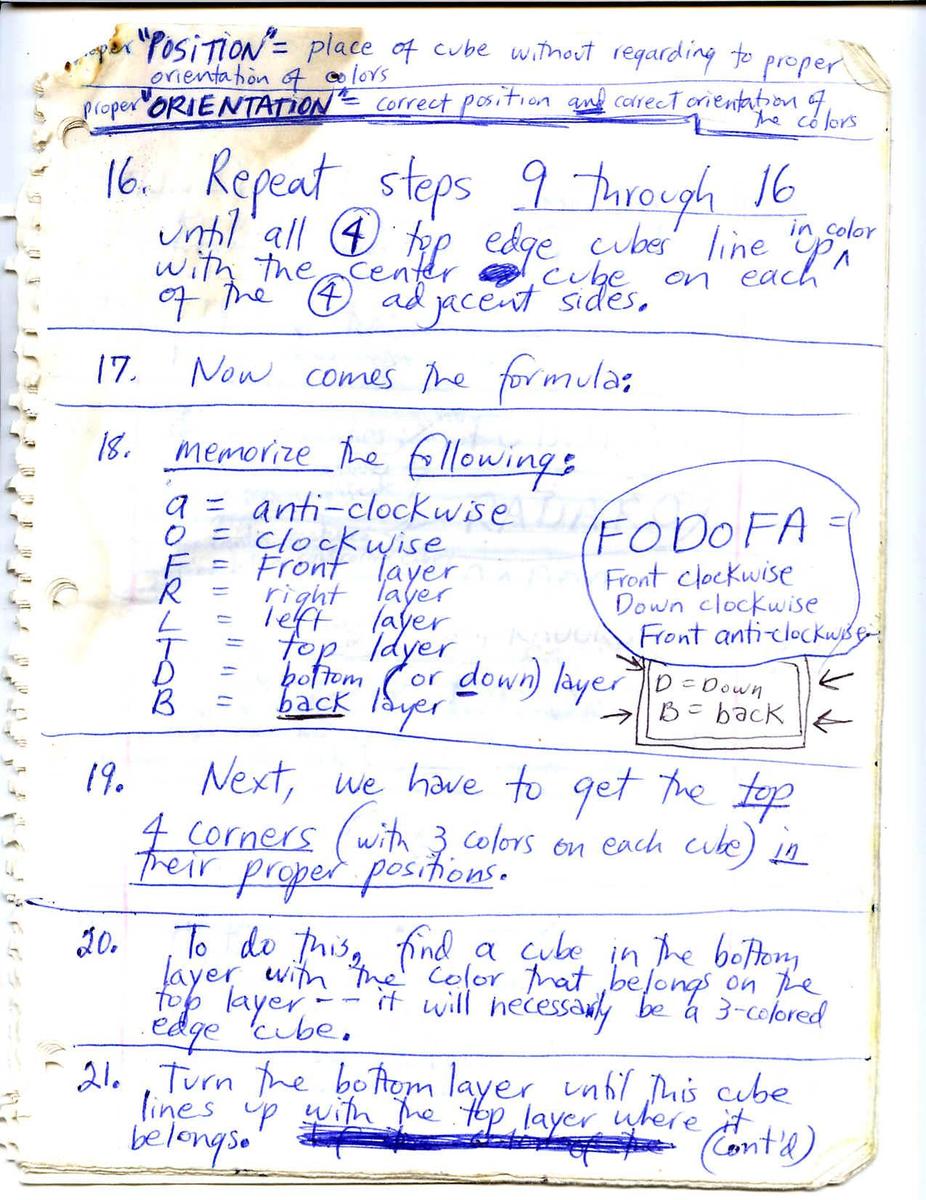 proper "POSITION" = place of cube without regarding to proper
orientation of colors
proper "ORIENTATION" = correct position and correct orientation of
the colors
16. Repeat steps 9 through 16
until all 4 top edge cubes line up ^ in color
with the center cube on each
of the 4 adjacent sides.
17. Now comes the formula:
18. memorize the following:
a = anti-clockwise
O = clockwise
F = Front layer
R = right layer
L = left layer
T = top layer
D = bottom (or down) layer
B = back layer
FODOFA =
Front clockwise
Down clockwise
Front anti-clockwise
D = Down
B = back
19. Next, we have to get the top
4 corners (with 3 colors on each cube) in
their proper positions.
20. To do this, find a cube in the bottom
layer with the color that belongs on the
top layer -- it will necessarily be a 3-colored
edge cube.
21. Turn the bottom layer until this cube
lines up with the top layer where it
belongs. (cont'd)